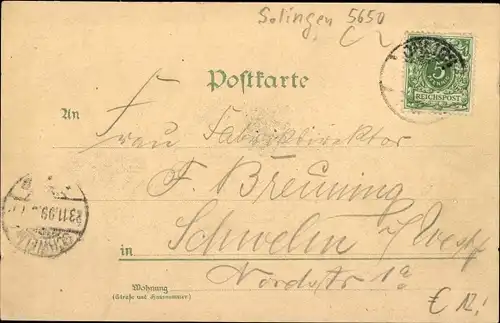 Solingen 5650
Postkarte
5
REICHSPOST
An
Frau Fabrikdirektor
F. Breuning
23.11.99
in Schwelm i/Westf
Nordstr 1a
Wohnung
(Straße und Hausnummer)
€ 12,-